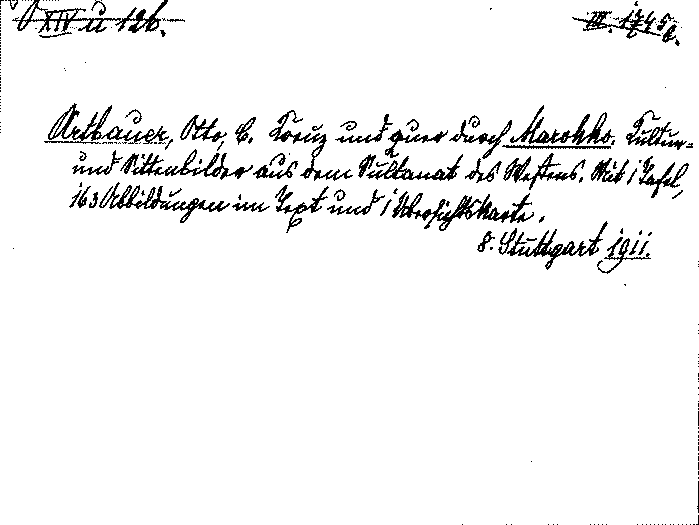 XIV u 126.
III. 1745
Artbauer, Otto, C. Kreuz und quer durch Marokko. Kultur-
und Sittenbilder aus dem Sultanat des Westens. Mit 1 Tafel,
163 Abbildungen im Text und 1 Übersichtskarte.
8. Stuttgart 1911.